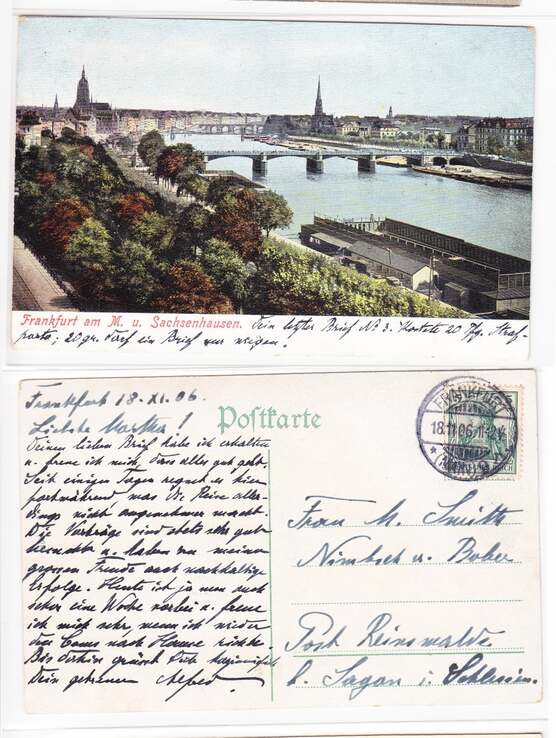 Frankfurt am M. u. Sachsenhausen. Dein letzter Brief No 3. kostete 20 Pfg. Straf-
porto. 20 gr. darf ein Brief nur wiegen!
Frankfurt 18-XI.06.
Liebste Martha!
Deinen lieben Brief habe ich erhalten
u. freue ich mich, dass alles gut geht.
Seit einigen Tagen regnet es hier
fortwährend was die Reise aller-
dings nicht angenehmer macht.
Die Vorträge sind stets sehr gut
besucht u. haben zu meiner
grossen Freude auch nachhaltige
Erfolge. Heute ist ja nun auch
schon eine Woche vorbei u. freue
ich mich sehr, wenn ich wieder
den Curs nach Hause richte.
Bis dahin grüsst Dich herzinnigst
Dein getreuer Alfred.
Postkarte
FRANKFURT
18.11.06. 11-12 V.
* (MAIN) 1
REICH
Frau M. Smith
Nimbsch a. Bober
Post Reinswalde
b. Sagan i. Schlesien.